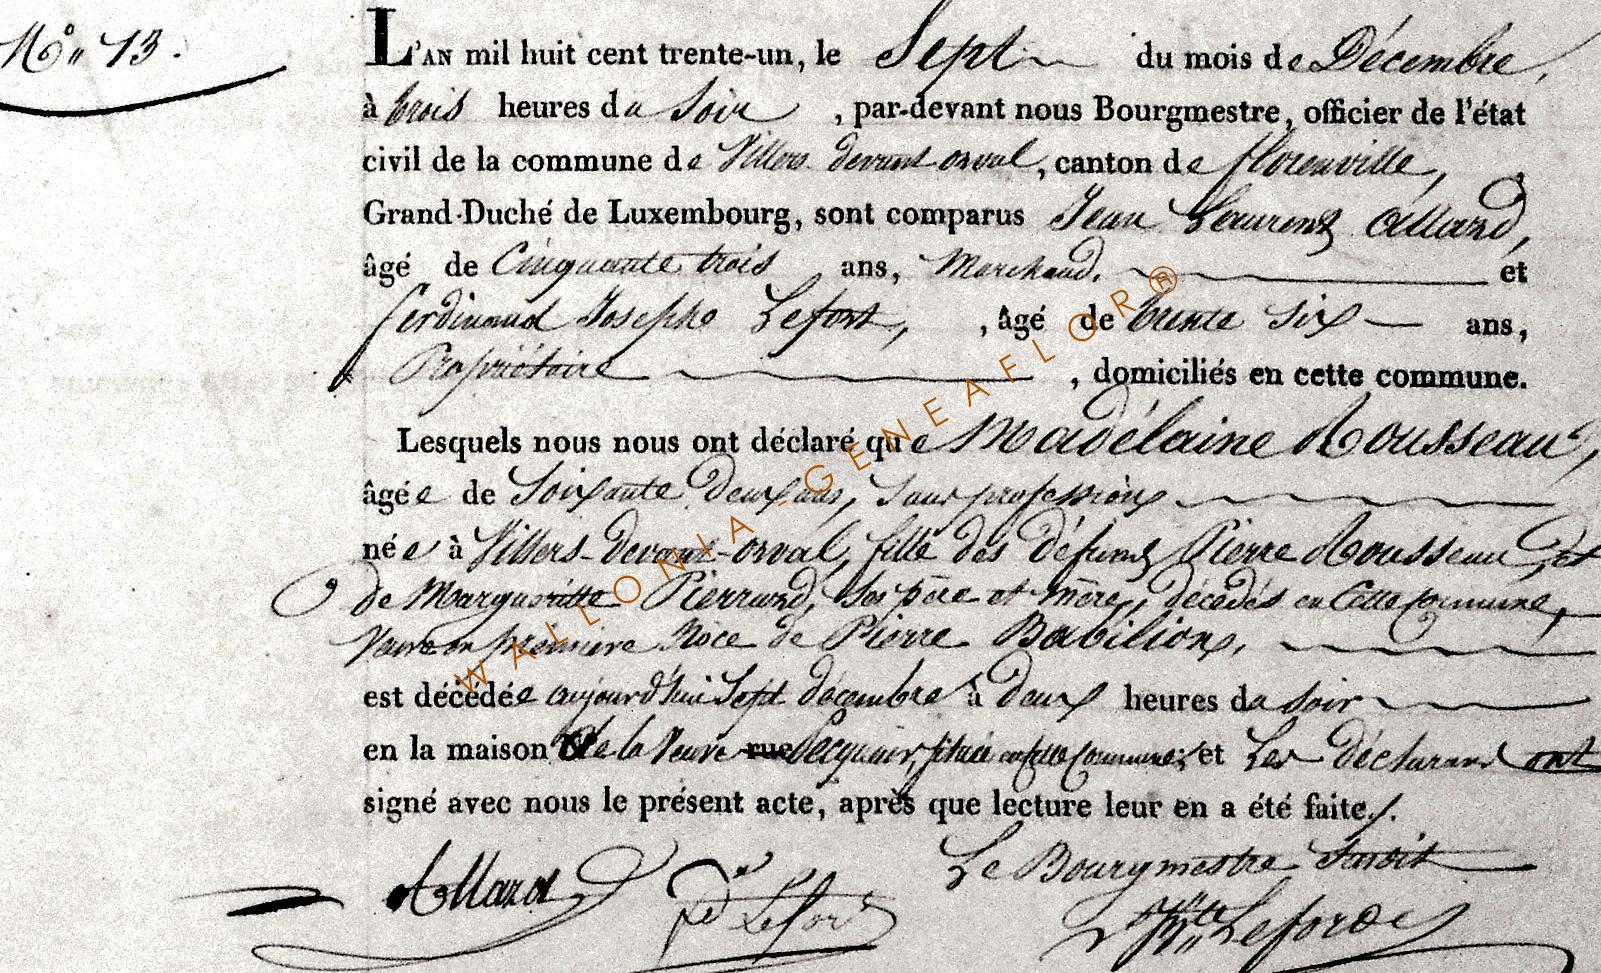 N° 13.
L'AN mil huit cent trente-un, le Sept du mois de Décembre,
à trois heures du Soir, par-devant nous Bourgmestre, officier de l'état
civil de la commune de Villers devant orval, canton de florenville,
Grand-Duché de Luxembourg, sont comparus Jean Laurent Allard,
âgé de Cinquante trois ans, Marchand. et
ferdinand Joseph Lefort, , âgé de trente Six ans,
Propriétaire , domiciliés en cette commune.
Lesquels nous nous ont déclaré que Madélaine Rousseau,
âgée de Soixante Deux ans, Sans profession
née à Villers-Devant-orval, fille des défunts Pierre Rousseau, et
de Margueritte Pierrard, Ses père et mère, décédés en Cette Commune,
Veuve en première Noce de Pierre Babilion,
est décédée aujourd'hui Sept décembre à deux heures du soir
en la maison de la Veuve rue située en cette Commune; et Les Déclarans ont
signé avec nous le présent acte, après que lecture leur en a été faite./.
Le Bourgmestre Susdit
Allard
Fd Lefort
Lefort
WALLONIA-GENEAFLOR®